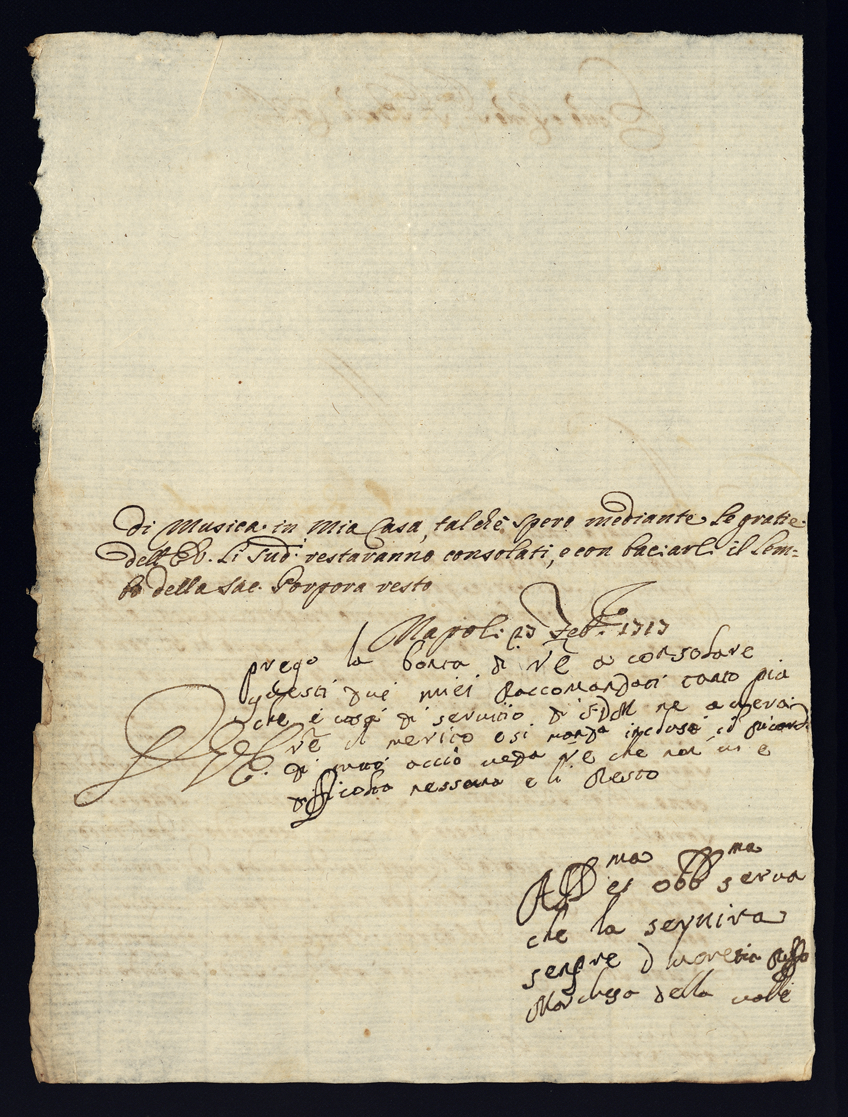 di Musica in Mia Casa, talche spero mediante le gratie
dell'Eñ. li Sud.i restaranno consolati, e con baciarl. il lem=
bo della Sac. Porpora resto
Napoli 23 Feb.ro 1717
prego la bonta di VE a consolare
questi due miei Raccomandati tanto piu
che è cosa di servitio di SDM ne avera
VE il merito e si manda incluso il
di acciò veda VE che non vi e
dificolta nessuna e li Resto
D VE.
Aff.ma et obb.ma serva
che la seguira
sempre D Lucretia Ruffo
Marchesa della valle